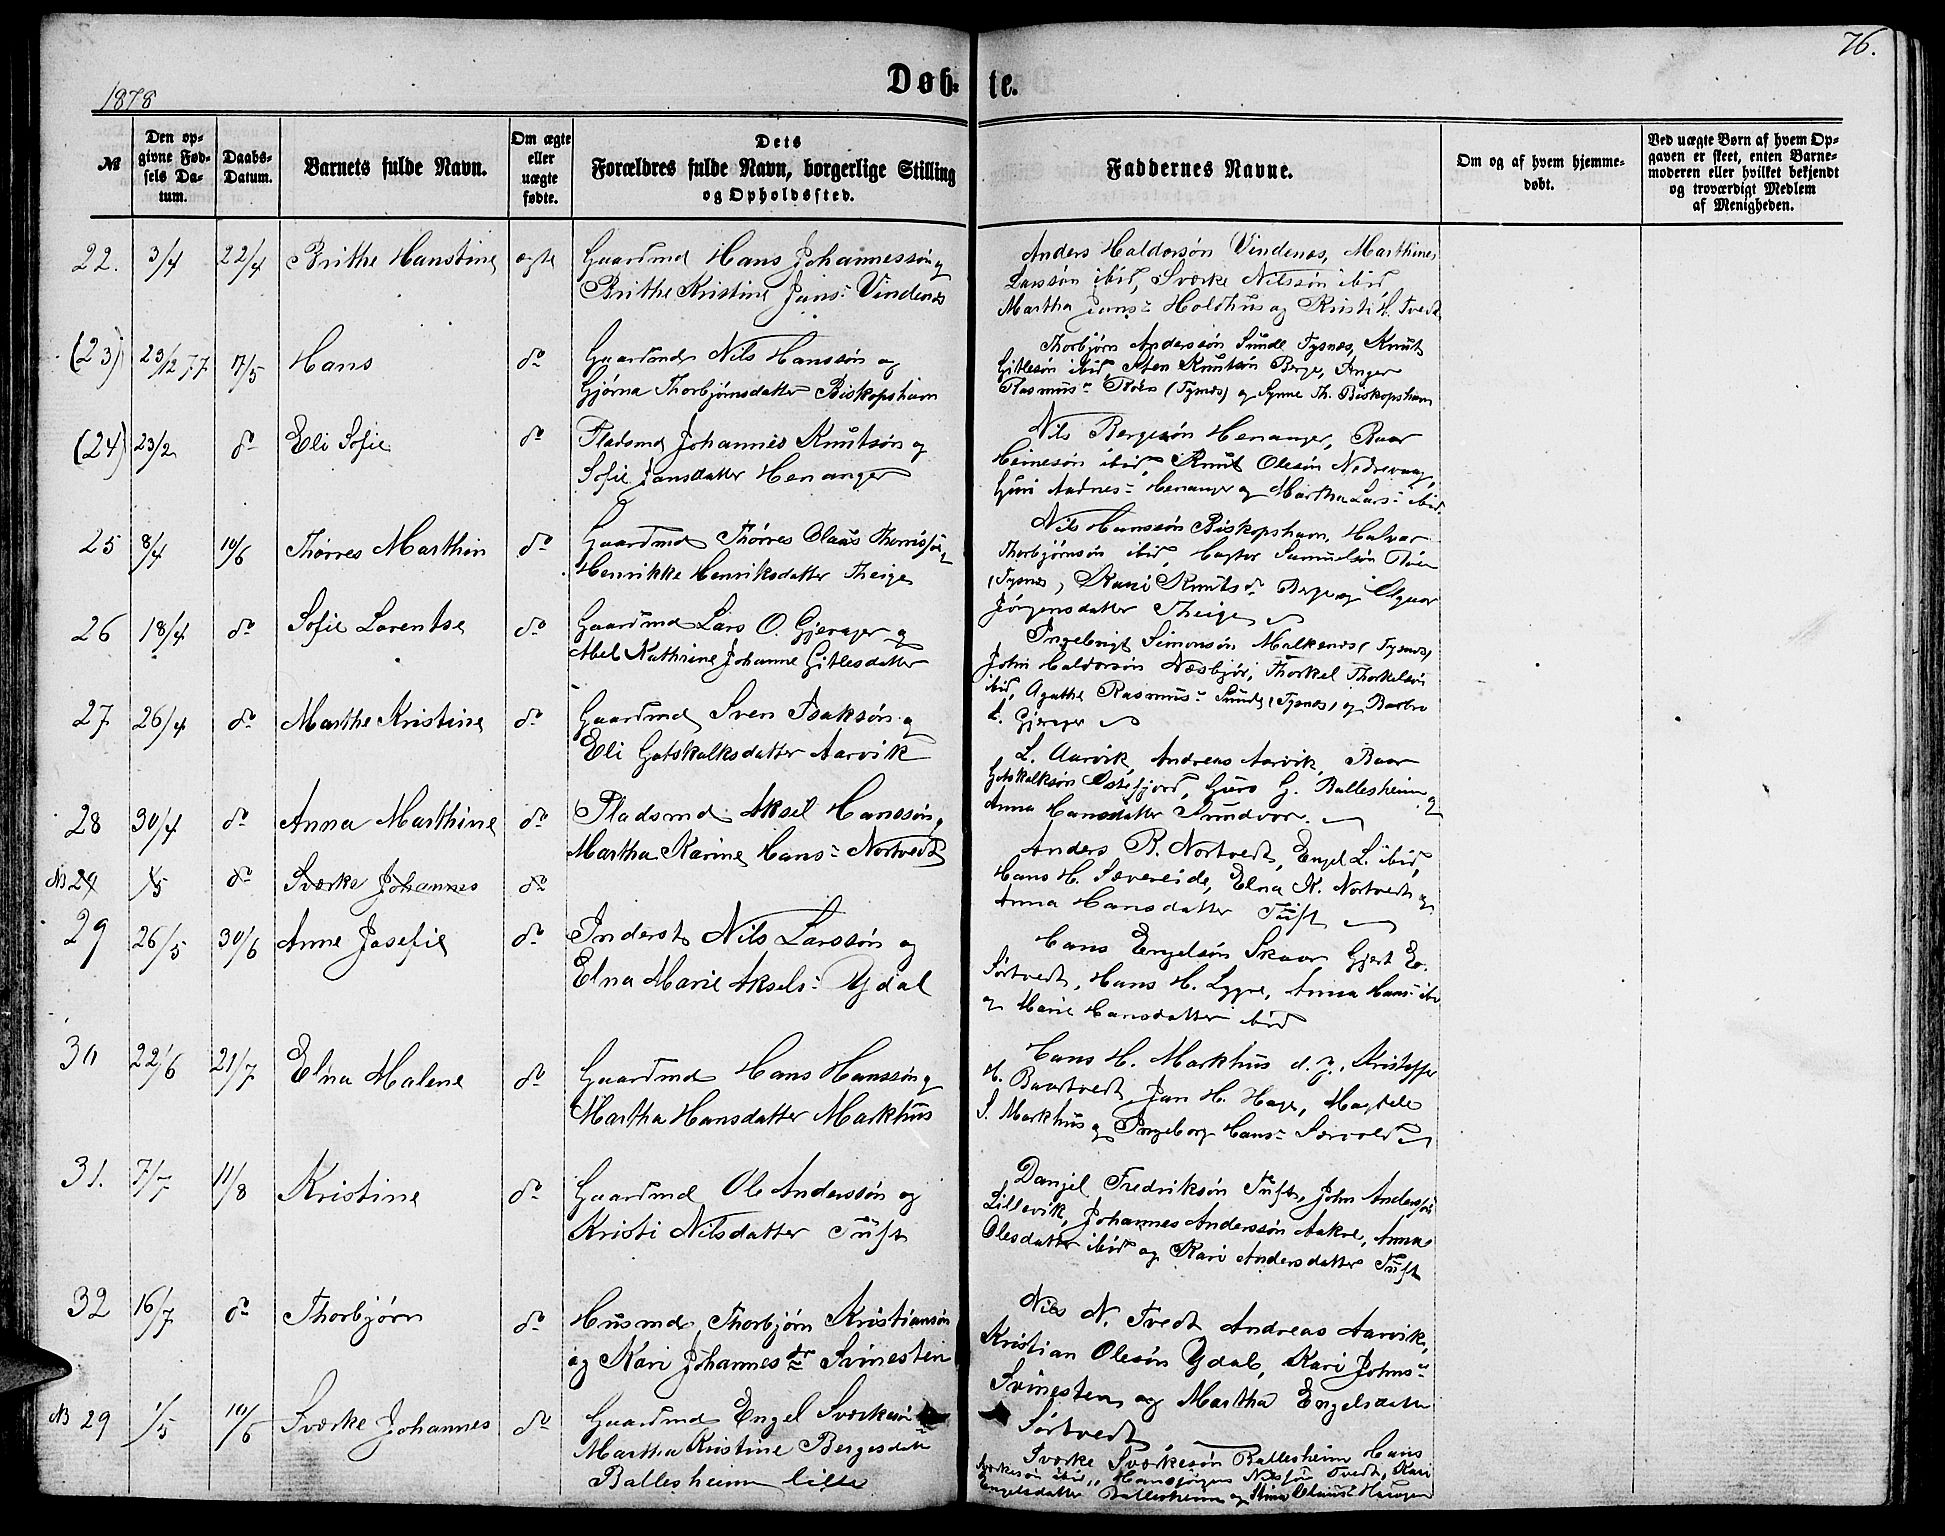 76.
Døb- te.
1878
№
Den opgivne Fødsels Datum.
Daabs-Datum.
Barnets fulde Navn.
Om ægte eller uægte fødte.
Dets Forældres fulde Navn, borgerlige Stilling og Opholdssted.
Faddernes Navne.
Om og af hvem hjemmedøbt.
Ved uægte Børn af hvem Opgaven er skeet, enten Barnemoderen eller hvilket bekjendt og troværdigt Medlem af Menigheden.
22. 3/4 22/4 Brithe Hanstine ægte Gaardmd Hans Johannessøn og
Brithe Kristine Jans- Vindenes
Anders Haldorsøn Vindenes, Marthines
Larssøn ibid, Sværke Nilssøn ibid,
Martha Jans- Holdhus og Kristi H. Tvedt
(23) 23/12 77 7/5 Hans do Gaardmd Nils Hanssøn og
Gjørna Thorbjørnsdatter Biskopshavn
Thorbjørn Anderssøn Sunde Tysnes, Knut
Gitlesøn ibid, Sten Knutsøn Berge, Inger
Rasmus- (Tysnes) og Synne Th. Biskopshavn
(24) 23/2 do Eli Sofie do Pladsmd Johannes Knutsøn og
Sofie Jansdatter Henanger
Nils Bergesøn Henanger, Baar
Heinesøn ibid, Knut Olesøn Nedrevaag,
Guri Andres- Henanger og Martha Lars- ibid.
25 8/4 10/6 Thørres Marthin do Gaardmd Thørres Olaus
Henrikke Henriksdatter Theige
Nils Hanssøn Biskopshavn, Halvor
Thorbjørnsøn ibid, Samuelsøn
(Tysnes), Kari Knutsdr Berge og
Jørgensdatter Theige
26 18/4 do Sofie Lorentse do Gaardmd Lars O. Gjerager og
Abel Kathrine Johanne Gitlesdatter
Ingebrigt Simonsøn Malkenes (Tysnes)
John Haldorsøn Næsbjør, Thorkel Thorkelsøn
ibid, Agathe Rasmus- Sunde (Tysnes) og Barbro
Gjerager
27 26/4 do Marthe Kristine do Gaardmd Sven Isaksøn og
Eli Gotskalksdatter Aarvik
L. Aarvik, Andreas Aarvik, Baar
Gotskalksøn Østefjord, Guro G. Ballesheim og
Anna Hansdatter Sundvor.
28 30/4 do Anna Marthine do Pladsmd Aksel Hanssøn og
Martha Karine Hans- Nortvedt
Anders R. Nortvedt, Engel L. ibid,
Hans H. Sævereide, Elna K. Nortvedt og
Anna Hansdatter Tuft
NB 29 1/5 do Sværke Johannes do
29 26/5 30/6 Anne Josefie do Inderst Nils Larssøn og
Elna Marie Aksels- Ydal
Hans Engelsøn Skaar Gjert E.
Sørtvedt, Hans H. Lygre, Anna Hans- ibd
og Marie Hansdatter ibid
30 22/6 21/7 Elna Malene do Gaardmd Hans Hanssøn og
Martha Hansdatter Markhus
Hans H. Markhus d. y., Kristoffer
H. Baartvedt, Jan H. Hage, Magdele
S. Markhus og Ingeborg Hans- Særvold
31. 7/7 11/8 Kristine do Gaardmd Ole Anderssøn og
Kristi Nilsdatter Tuft
Danjel Fredriksøn Tuft, John Anderssøn
Lillevik, Johannes Anderssøn Aakre, Anna
Olesdatter ibid og Kari Andersdatter Tuft
32 16/7 do Thorbjørn do Husmd Thorbjørn Kristiansøn
og Kari Johannesdr Svinesten
Nils N. Tvedt Andreas Aarvik,
Kristian Olesøn Ydal, Kari Johns-
Svinesten og Martha Engelsdatter
Sørtvedt
NB 29 1/5 10/6 Sværke Johannes do Gaardmd Engel Sværkesøn
Martha Kristine Bergesdatter
Ballesheim lille
Sværke Sværkesøn Ballesheim Hans
Sværkesøn ibid, Hansjørgen Nilssøn Tvedt, Kari
Engelsdatter Ballesheim og Stina